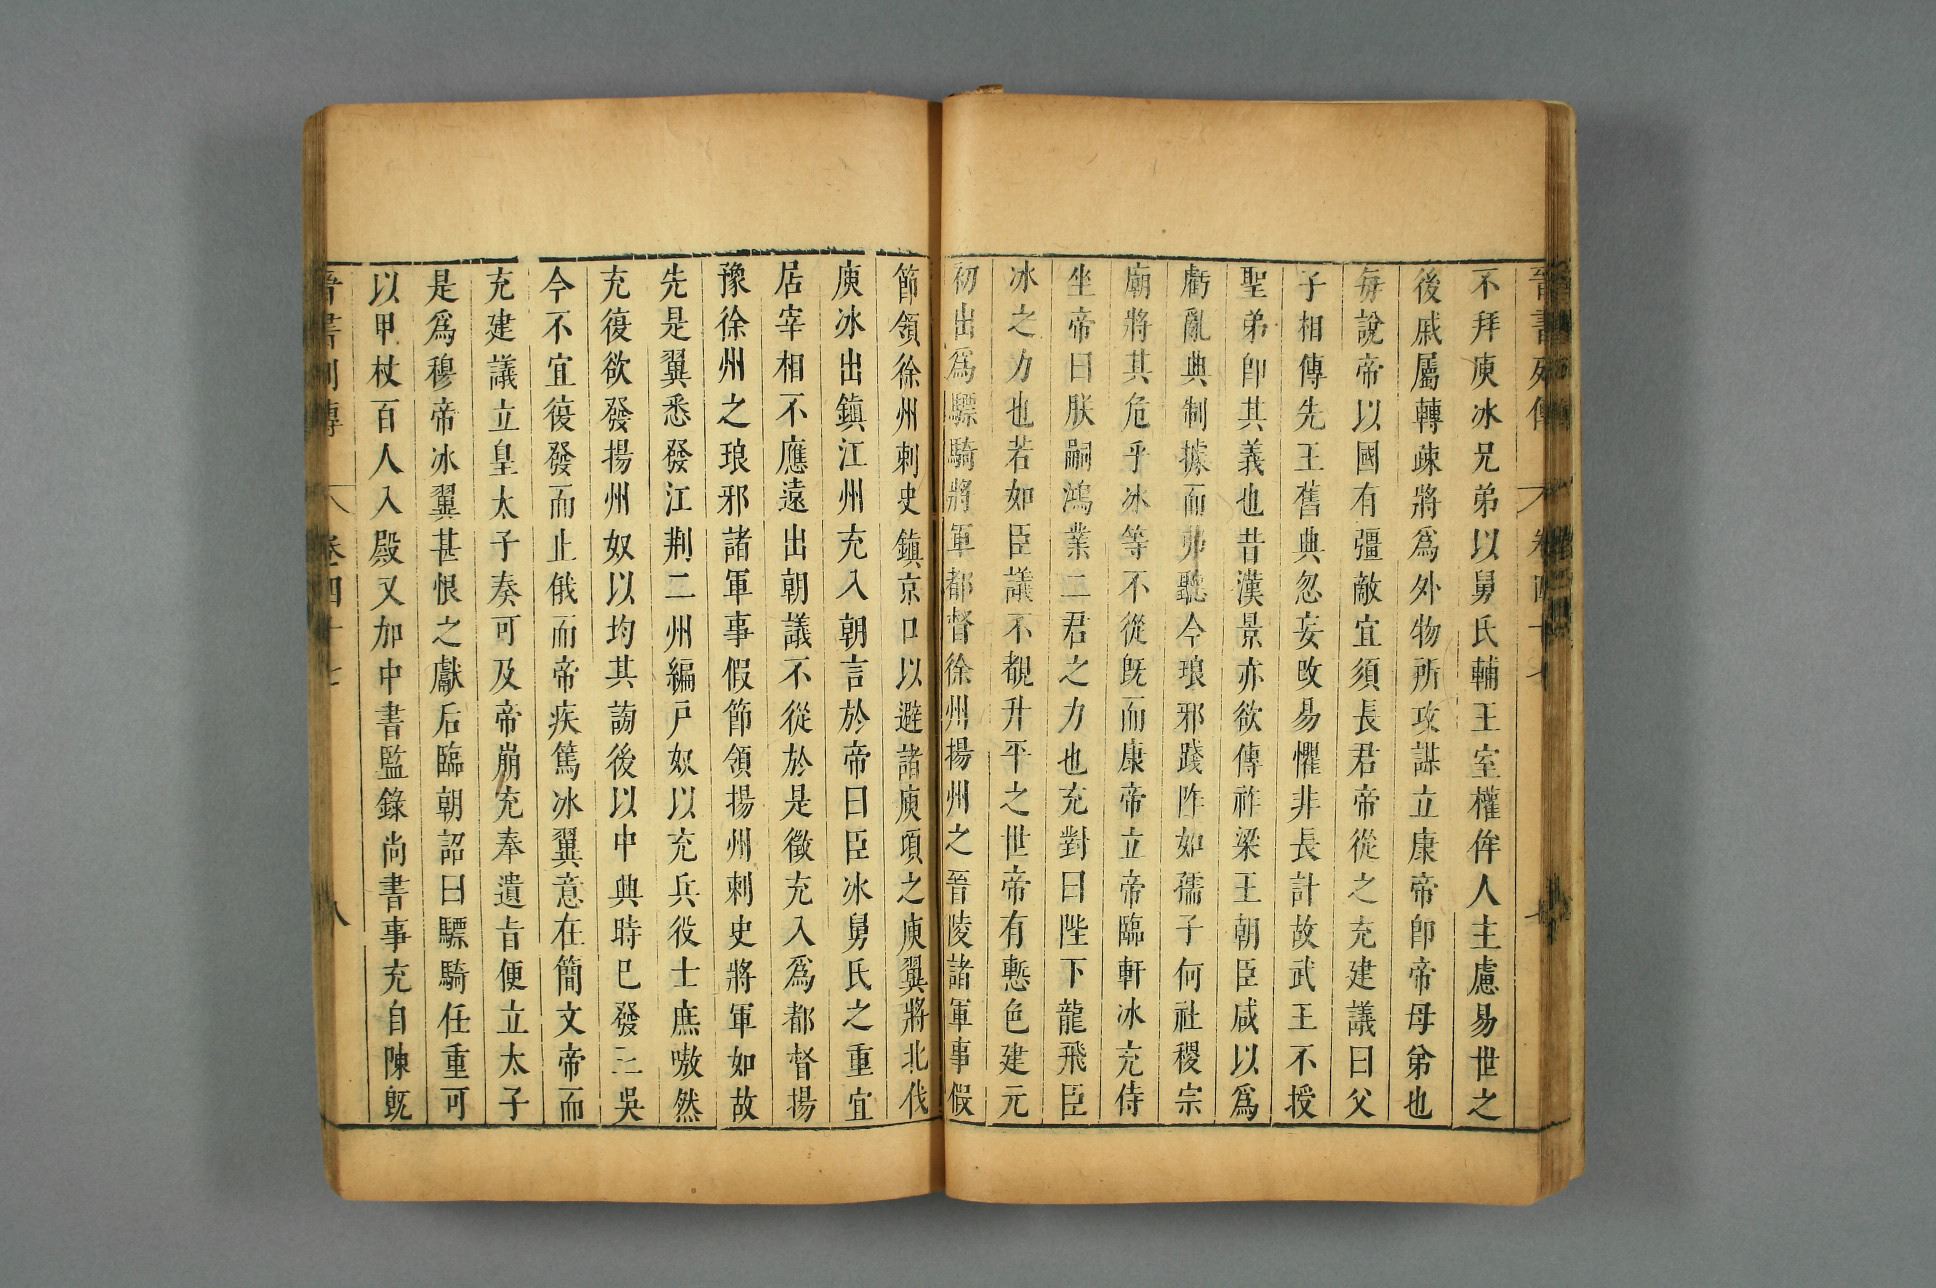 晉書列傳 卷四十七 七
不拜庾冰兄弟以舅氏輔王室權侔人主慮易世之
後戚屬轉疎將爲外物所攻謀立康帝卽帝母弟也
每說帝以國有彊敵宜須長君帝從之充建議曰父
子相傳先王舊典忽妄改易懼非長計故武王不授
聖弟卽其義也昔漢景亦欲傳祚梁王朝臣咸以爲
虧亂典制據而弗聽今琅邪踐阼如孺子何社稷宗
廟將其危乎冰等不從旣而康帝立帝臨軒冰充侍
坐帝曰朕嗣鴻業二君之力也充對曰陛下龍飛臣
冰之力也若如臣議不覩升平之世帝有慙色建元
初出爲驃騎將軍都督徐州揚州之晉陵諸軍事假
節領徐州刺史鎭京口以避諸庾頃之庾翼將北伐
庾冰出鎭江州充入朝言於帝曰臣冰舅氏之重宜
居宰相不應遠出朝議不從於是徵充入爲都督揚
豫徐州之琅邪諸軍事假節領揚州刺史將軍如故
先是翼悉發江荆二州編戶奴以充兵役士庶嗷然
充復欲發揚州奴以均其謗後以中興時已發三吳
今不宜復發而止俄而帝疾篤冰翼意在簡文帝而
充建議立皇太子奏可及帝崩充奉遺旨便立太子
是爲穆帝冰翼甚恨之獻后臨朝詔曰驃騎任重可
以甲杖百人入殿又加中書監錄尚書事充自陳旣
晉書列傳 卷四十七 八